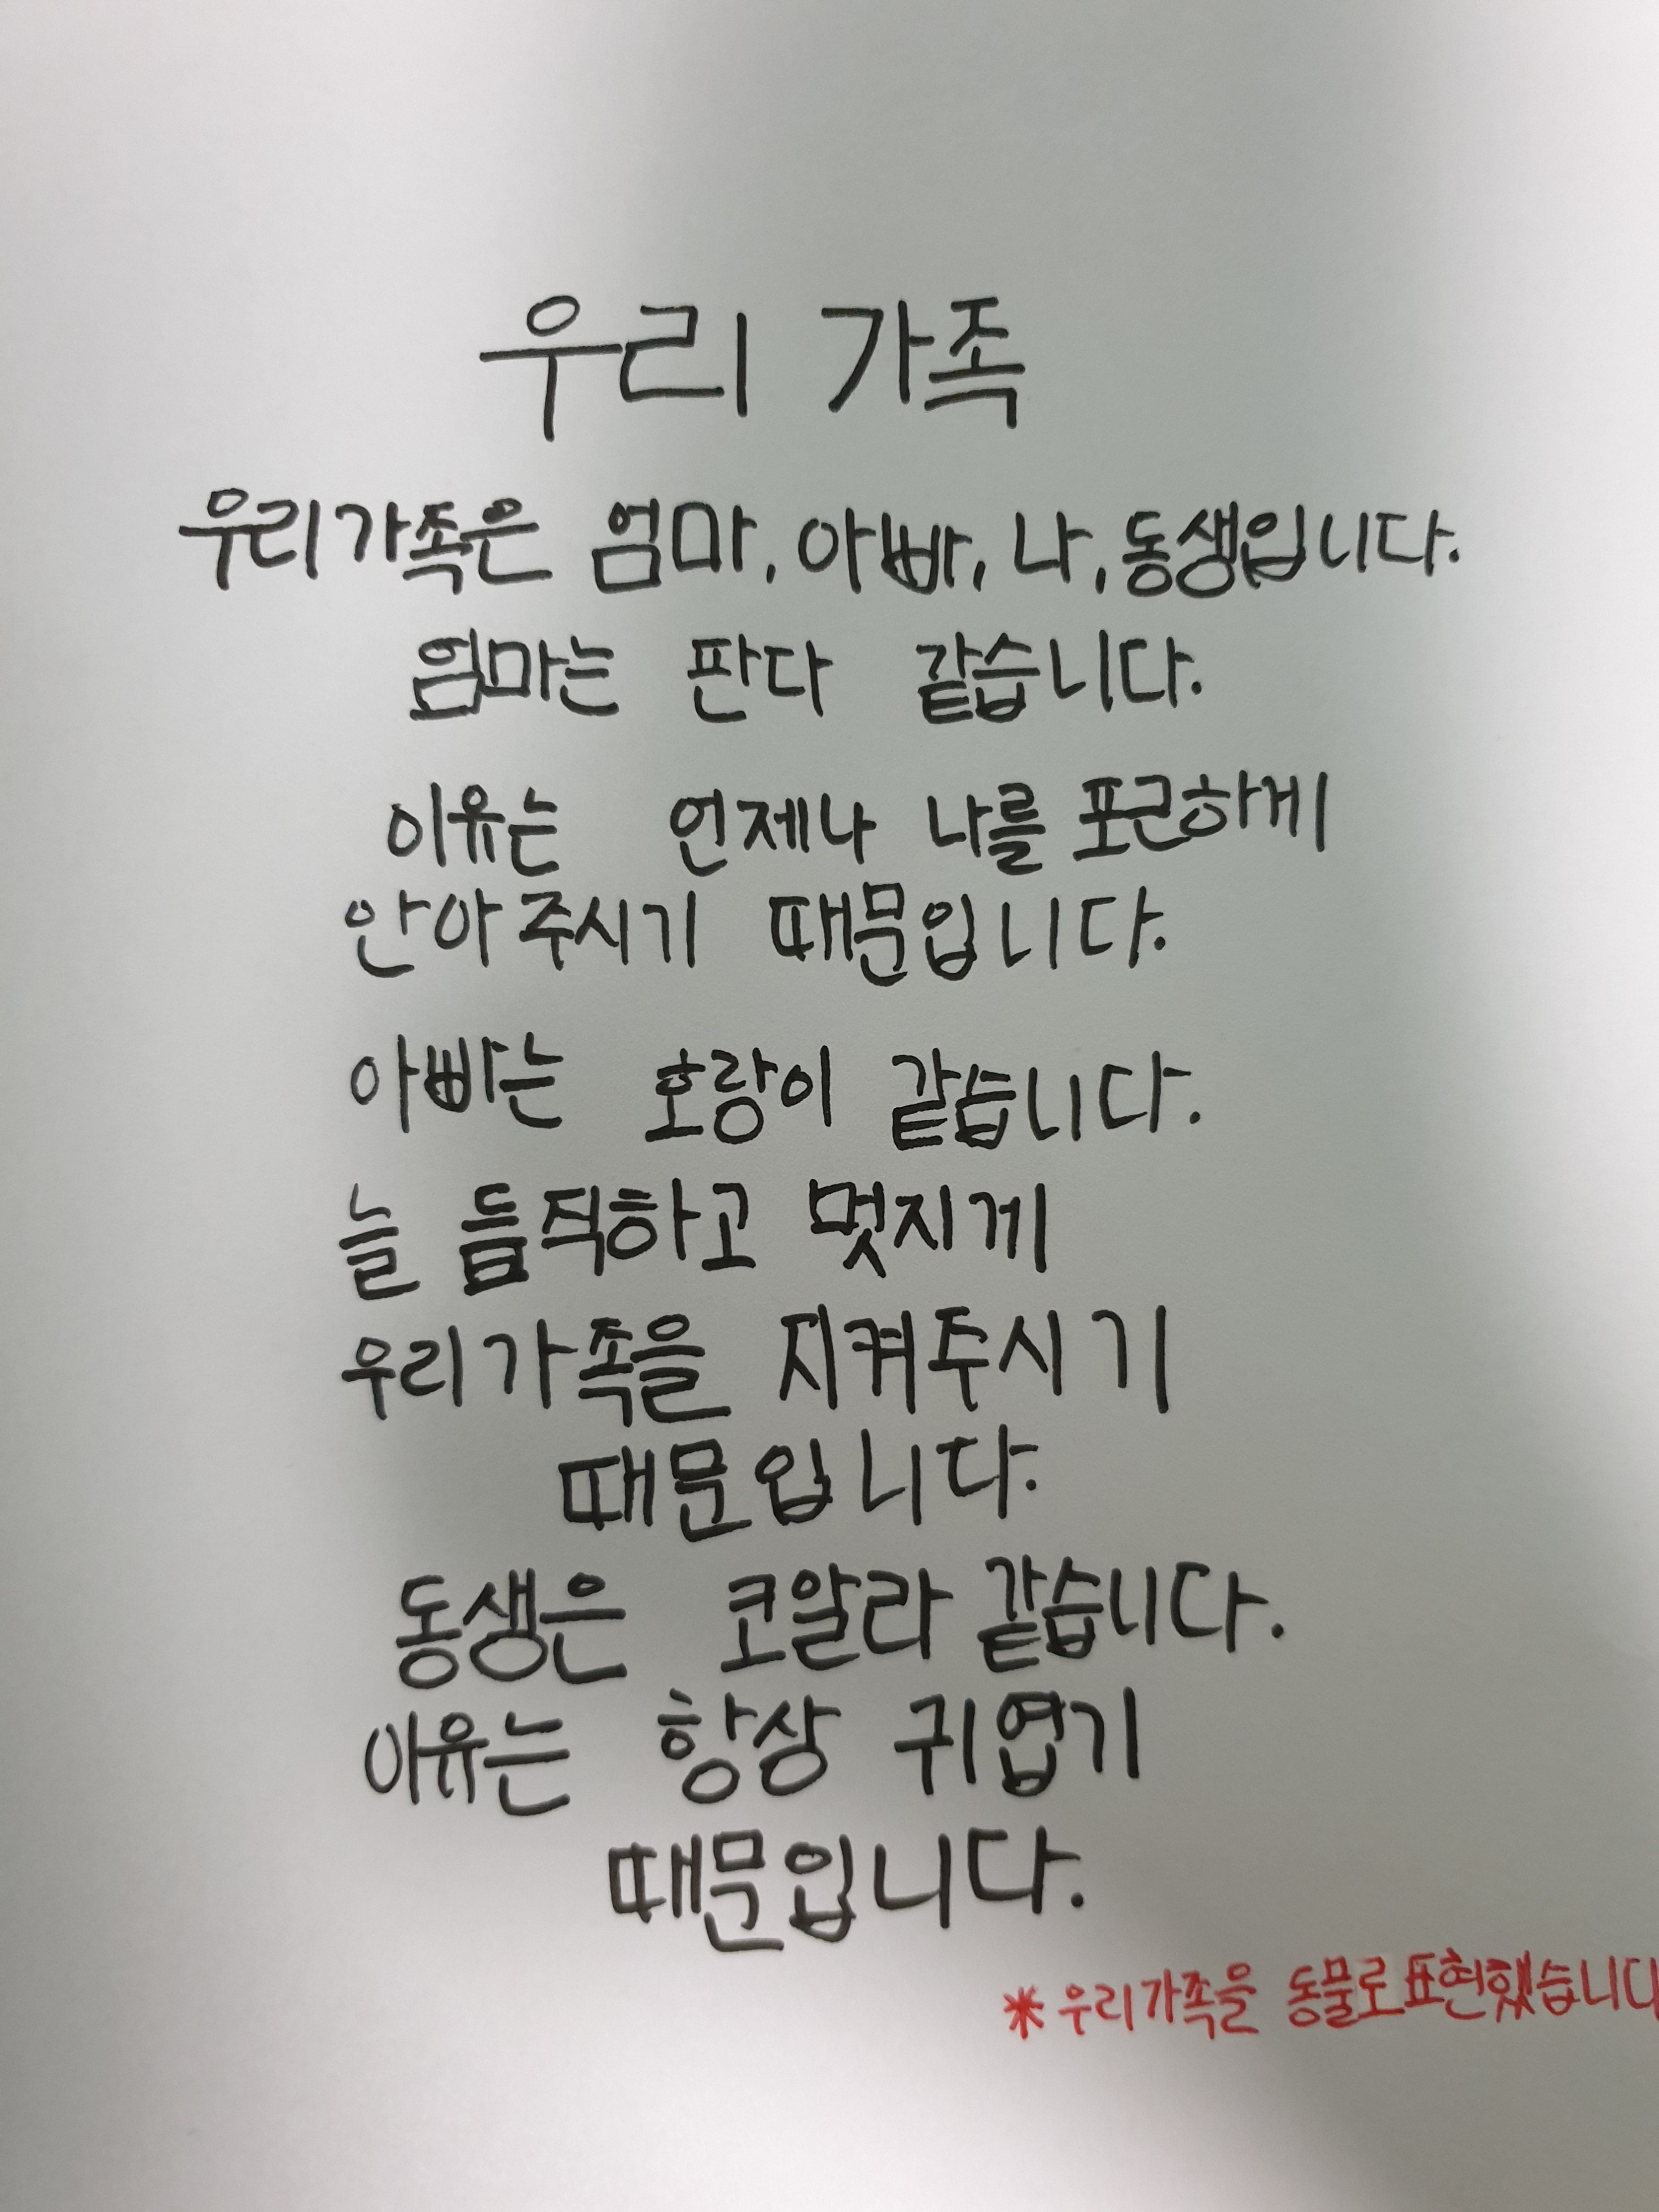 우리 가족
우리가족은 엄마, 아빠, 나, 동생입니다.
엄마는 판다 같습니다.
이유는 언제나 나를 포근하게
안아주시기 때문입니다.
아빠는 호랑이 같습니다.
늘 듬직하고 멋지게
우리가족을 지켜주시기
때문입니다.
동생은 코알라 같습니다.
이유는 항상 귀엽기
때문입니다.
*우리가족을 동물로표현했습니다